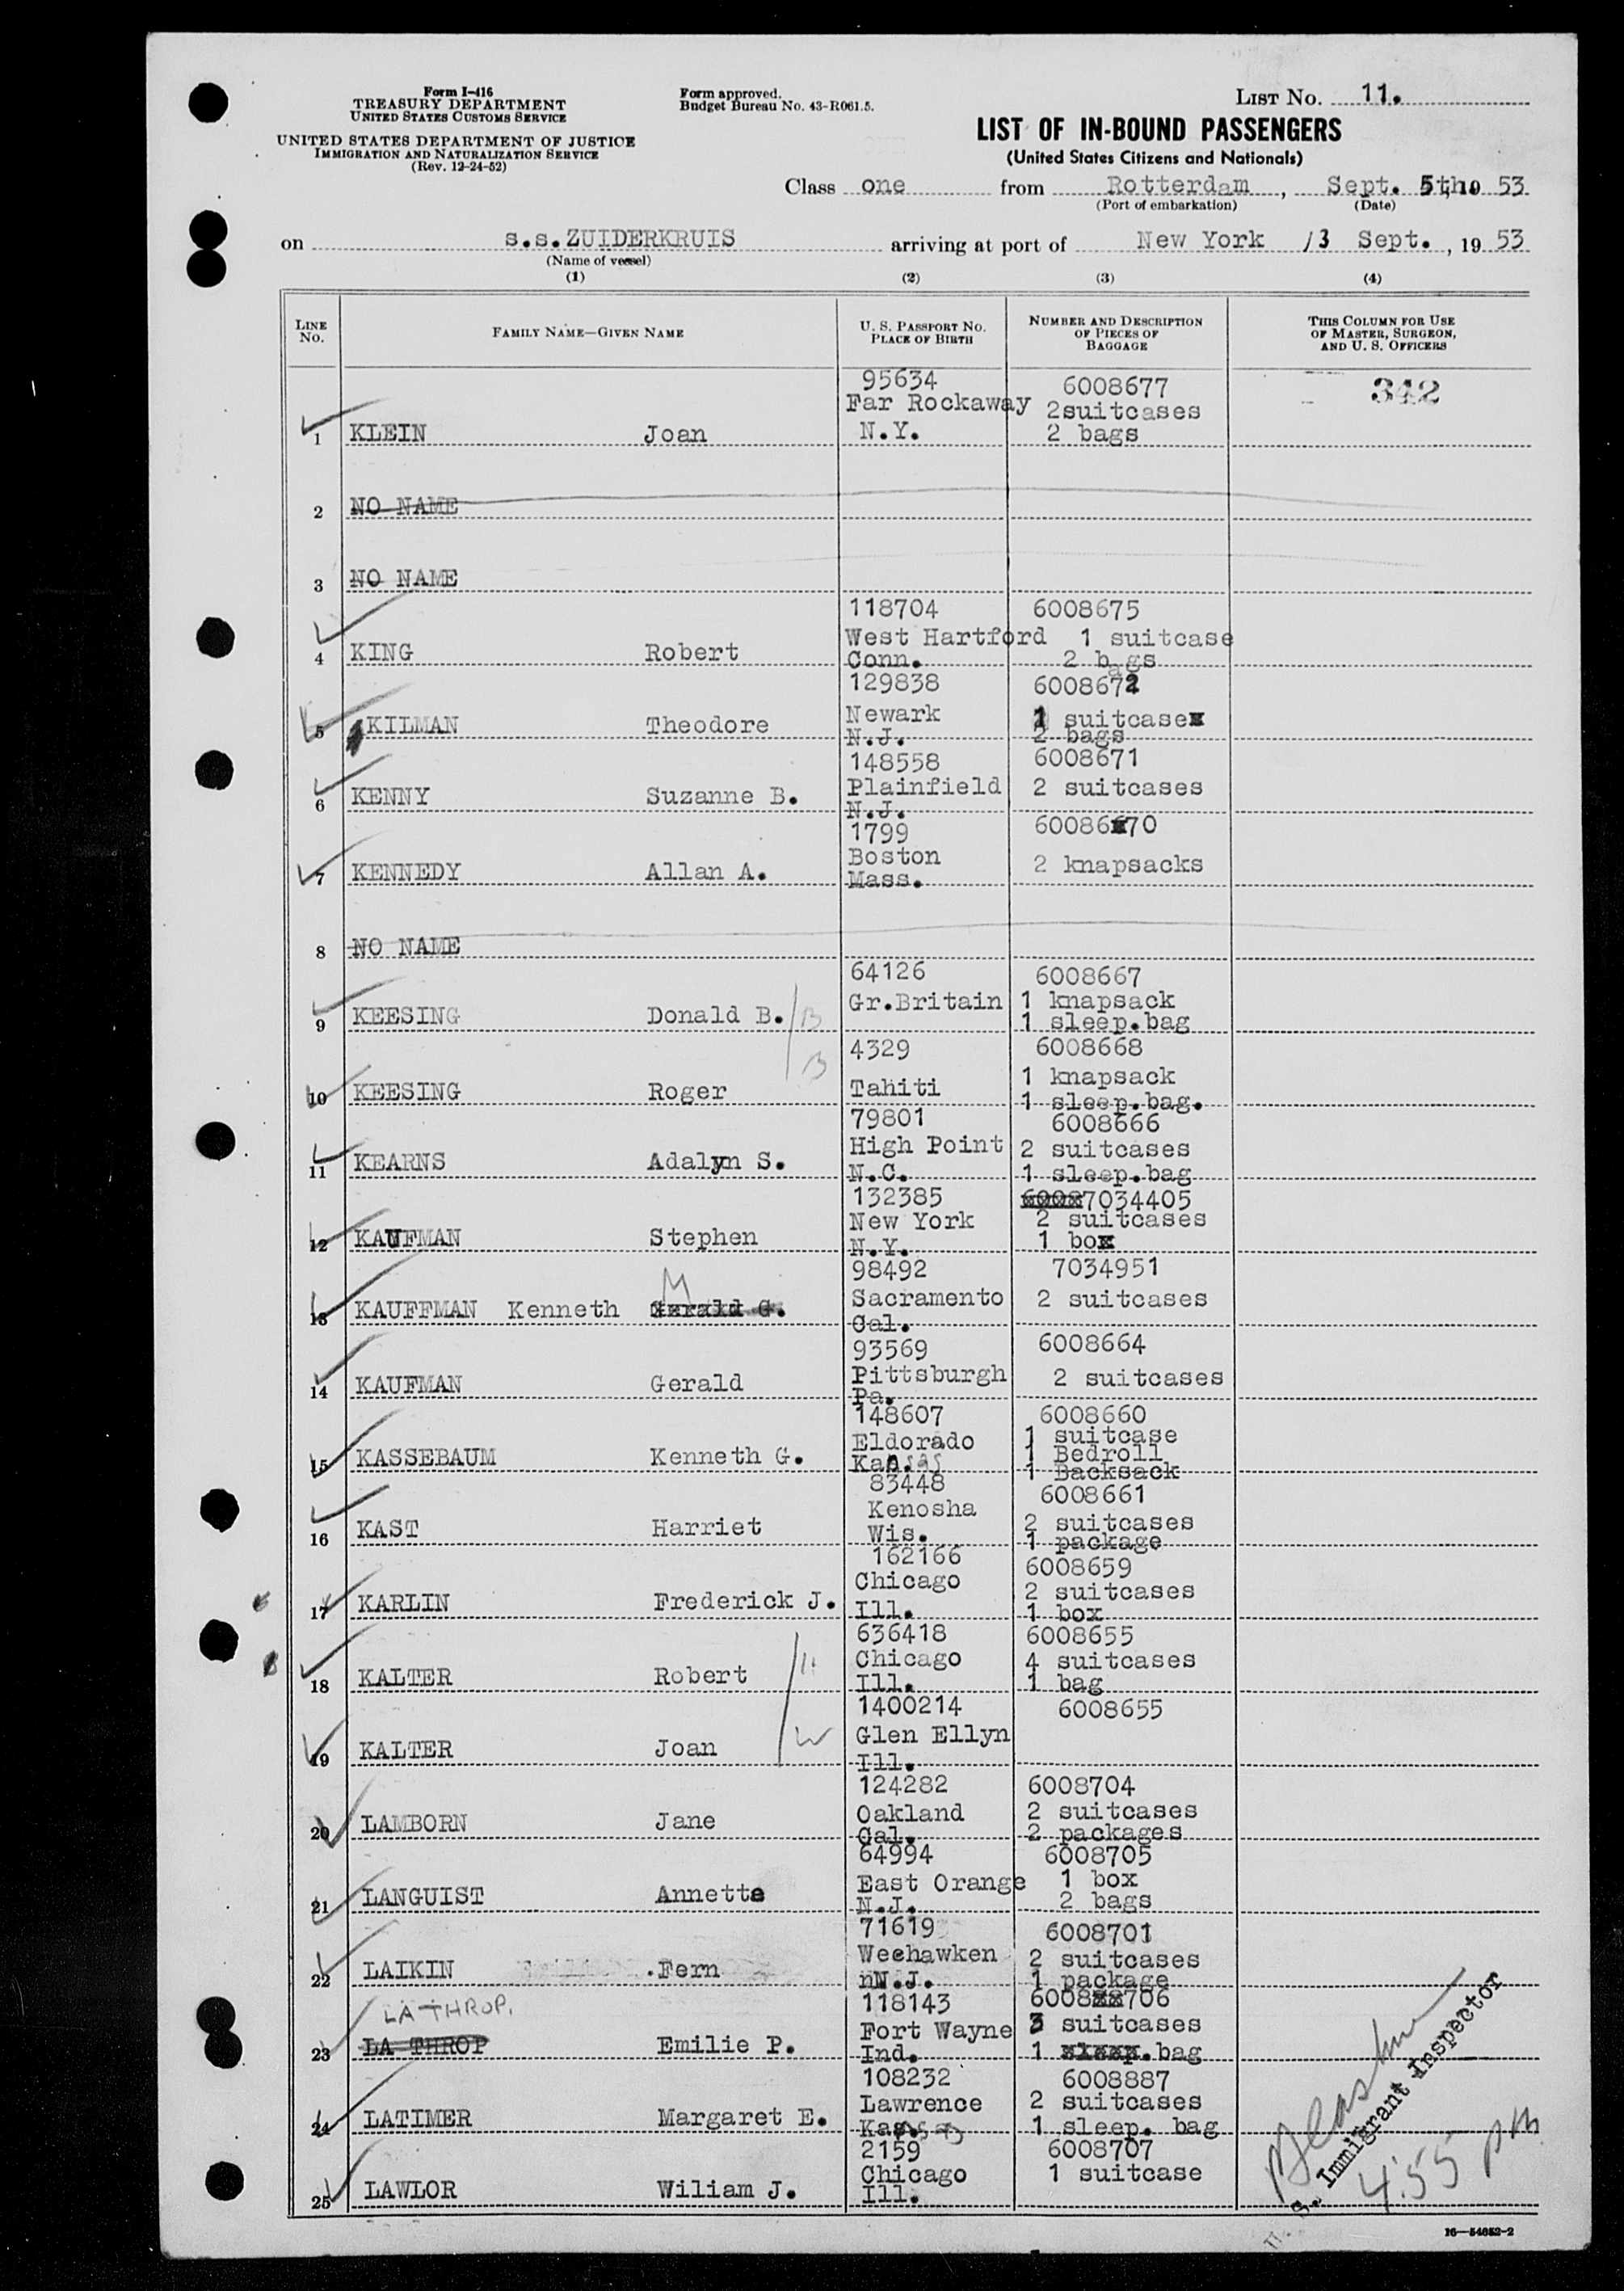 Form I-416
TREASURY DEPARTMENT
UNITED STATES CUSTOMS SERVICE
UNITED STATES DEPARTMENT OF JUSTICE
IMMIGRATION AND NATURALIZATION SERVICE
(Rev. 12-24-52)
Form approved.
Budget Bureau No. 43-R061.5.
LIST NO. 11.
LIST OF IN-BOUND PASSENGERS
(United States Citizens and Nationals)
Class one from Rotterdam, Sept. 5th, 19 53
(Port of embarkation) (Date)
on s.s.ZUIDERKRUIS arriving at port of New York 13 Sept., 19 53
(Name of vessel)
(1) (2) (3) (4)
LINE NO.
FAMILY NAME—GIVEN NAME
U. S. PASSPORT NO.
PLACE OF BIRTH
NUMBER AND DESCRIPTION
OF PIECES OF
BAGGAGE
THIS COLUMN FOR USE
OF MASTER, SURGEON,
AND U. S. OFFICERS
95634 6008677 342
Far Rockaway 2suitcases
1 KLEIN Joan N.Y. 2 bags
2 NO NAME
3 NO NAME
118704 6008675
West Hartford 1 suitcase
4 KING Robert Conn. 2 bags
129838 6008672
Newark 1 suitcase
5 KILMAN Theodore N.J. 2 bags
148558 6008671
Plainfield 2 suitcases
6 KENNY Suzanne B. N.J.
1799 6008670
Boston 2 knapsacks
7 KENNEDY Allan A. Mass.
8 NO NAME
64126 6008667
Gr.Britain 1 knapsack
9 KEESING Donald B. B 1 sleep.bag
4329 6008668
B
Tahiti 1 knapsack
10 KEESING Roger 1 sleep.bag.
79801 6008666
High Point 2 suitcases
11 KEARNS Adalyn S. N.C. 1 sleep.bag
132385 7034405
New York 2 suitcases
12 KAUFMAN Stephen N.Y. 1 box
98492 7034951
M
Sacramento 2 suitcases
13 KAUFFMAN Kenneth Gerald G. Cal.
93569 6008664
Pittsburgh 2 suitcases
14 KAUFMAN Gerald Pa.
148607 6008660
Eldorado 1 suitcase
1 Bedroll
15 KASSEBAUM Kenneth G. Kansas 1 Backsack
83448 6008661
Kenosha 2 suitcases
16 KAST Harriet Wis. 1 package
162166 6008659
Chicago 2 suitcases
17 KARLIN Frederick J. Ill. 1 box
636418 6008655
Chicago 4 suitcases
18 KALTER Robert H Ill. 1 bag
1400214 6008655
Glen Ellyn
19 KALTER Joan W Ill.
124282 6008704
Oakland 2 suitcases
20 LAMBORN Jane Cal. 2 packages
64994 6008705
East Orange 1 box
21 LANGUIST Annette N.J. 2 bags
71619 6008701
Weehawken 2 suitcases
22 LAIKIN Fern nN.J. 1 package
118143 6008706
LATHROP.
Fort Wayne 3 suitcases
23 LA THROP Emilie P. Ind. 1 sleep.bag
108232 6008887
Lawrence 2 suitcases
24 LATIMER Margaret E. Kas. 1 sleep. bag
2159 6008707
Chicago 1 suitcase
25 LAWLOR Wiliam J. Ill.
U. S. Immigrant Inspector
4:55 PM
16—54652-2